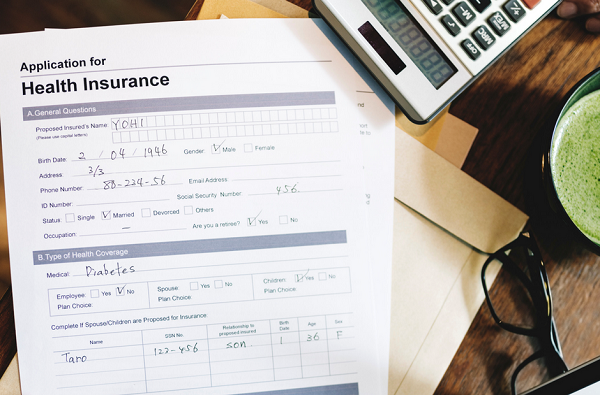 Application for
Health Insurance
A.General Questions
Proposed Insured's Name YOHI
(Please use capital letters)
Birth Date 2 / 04 / 1946 Gender: Male Female
Address 3/3
Phone Number: 80-224-56 Email Address
ID Number: Social Security Number 456
Status: Single Married Devorced Others
Occupation: — Are you a retiree? Yes No
B.Type of Health Coverage
Medical: Diabetes
Employee: Yes No Spouse: Yes No Children: Yes No
Plan Choice: Plan Choice: Plan Choice:
Complete If Spouse/Children are Proposed for Insurance:
Name SSN No. Relationship to proposed insured Birth Date Age Sex
Taro 122-456 son 1 36 F
OFF
MRC
M-
M+